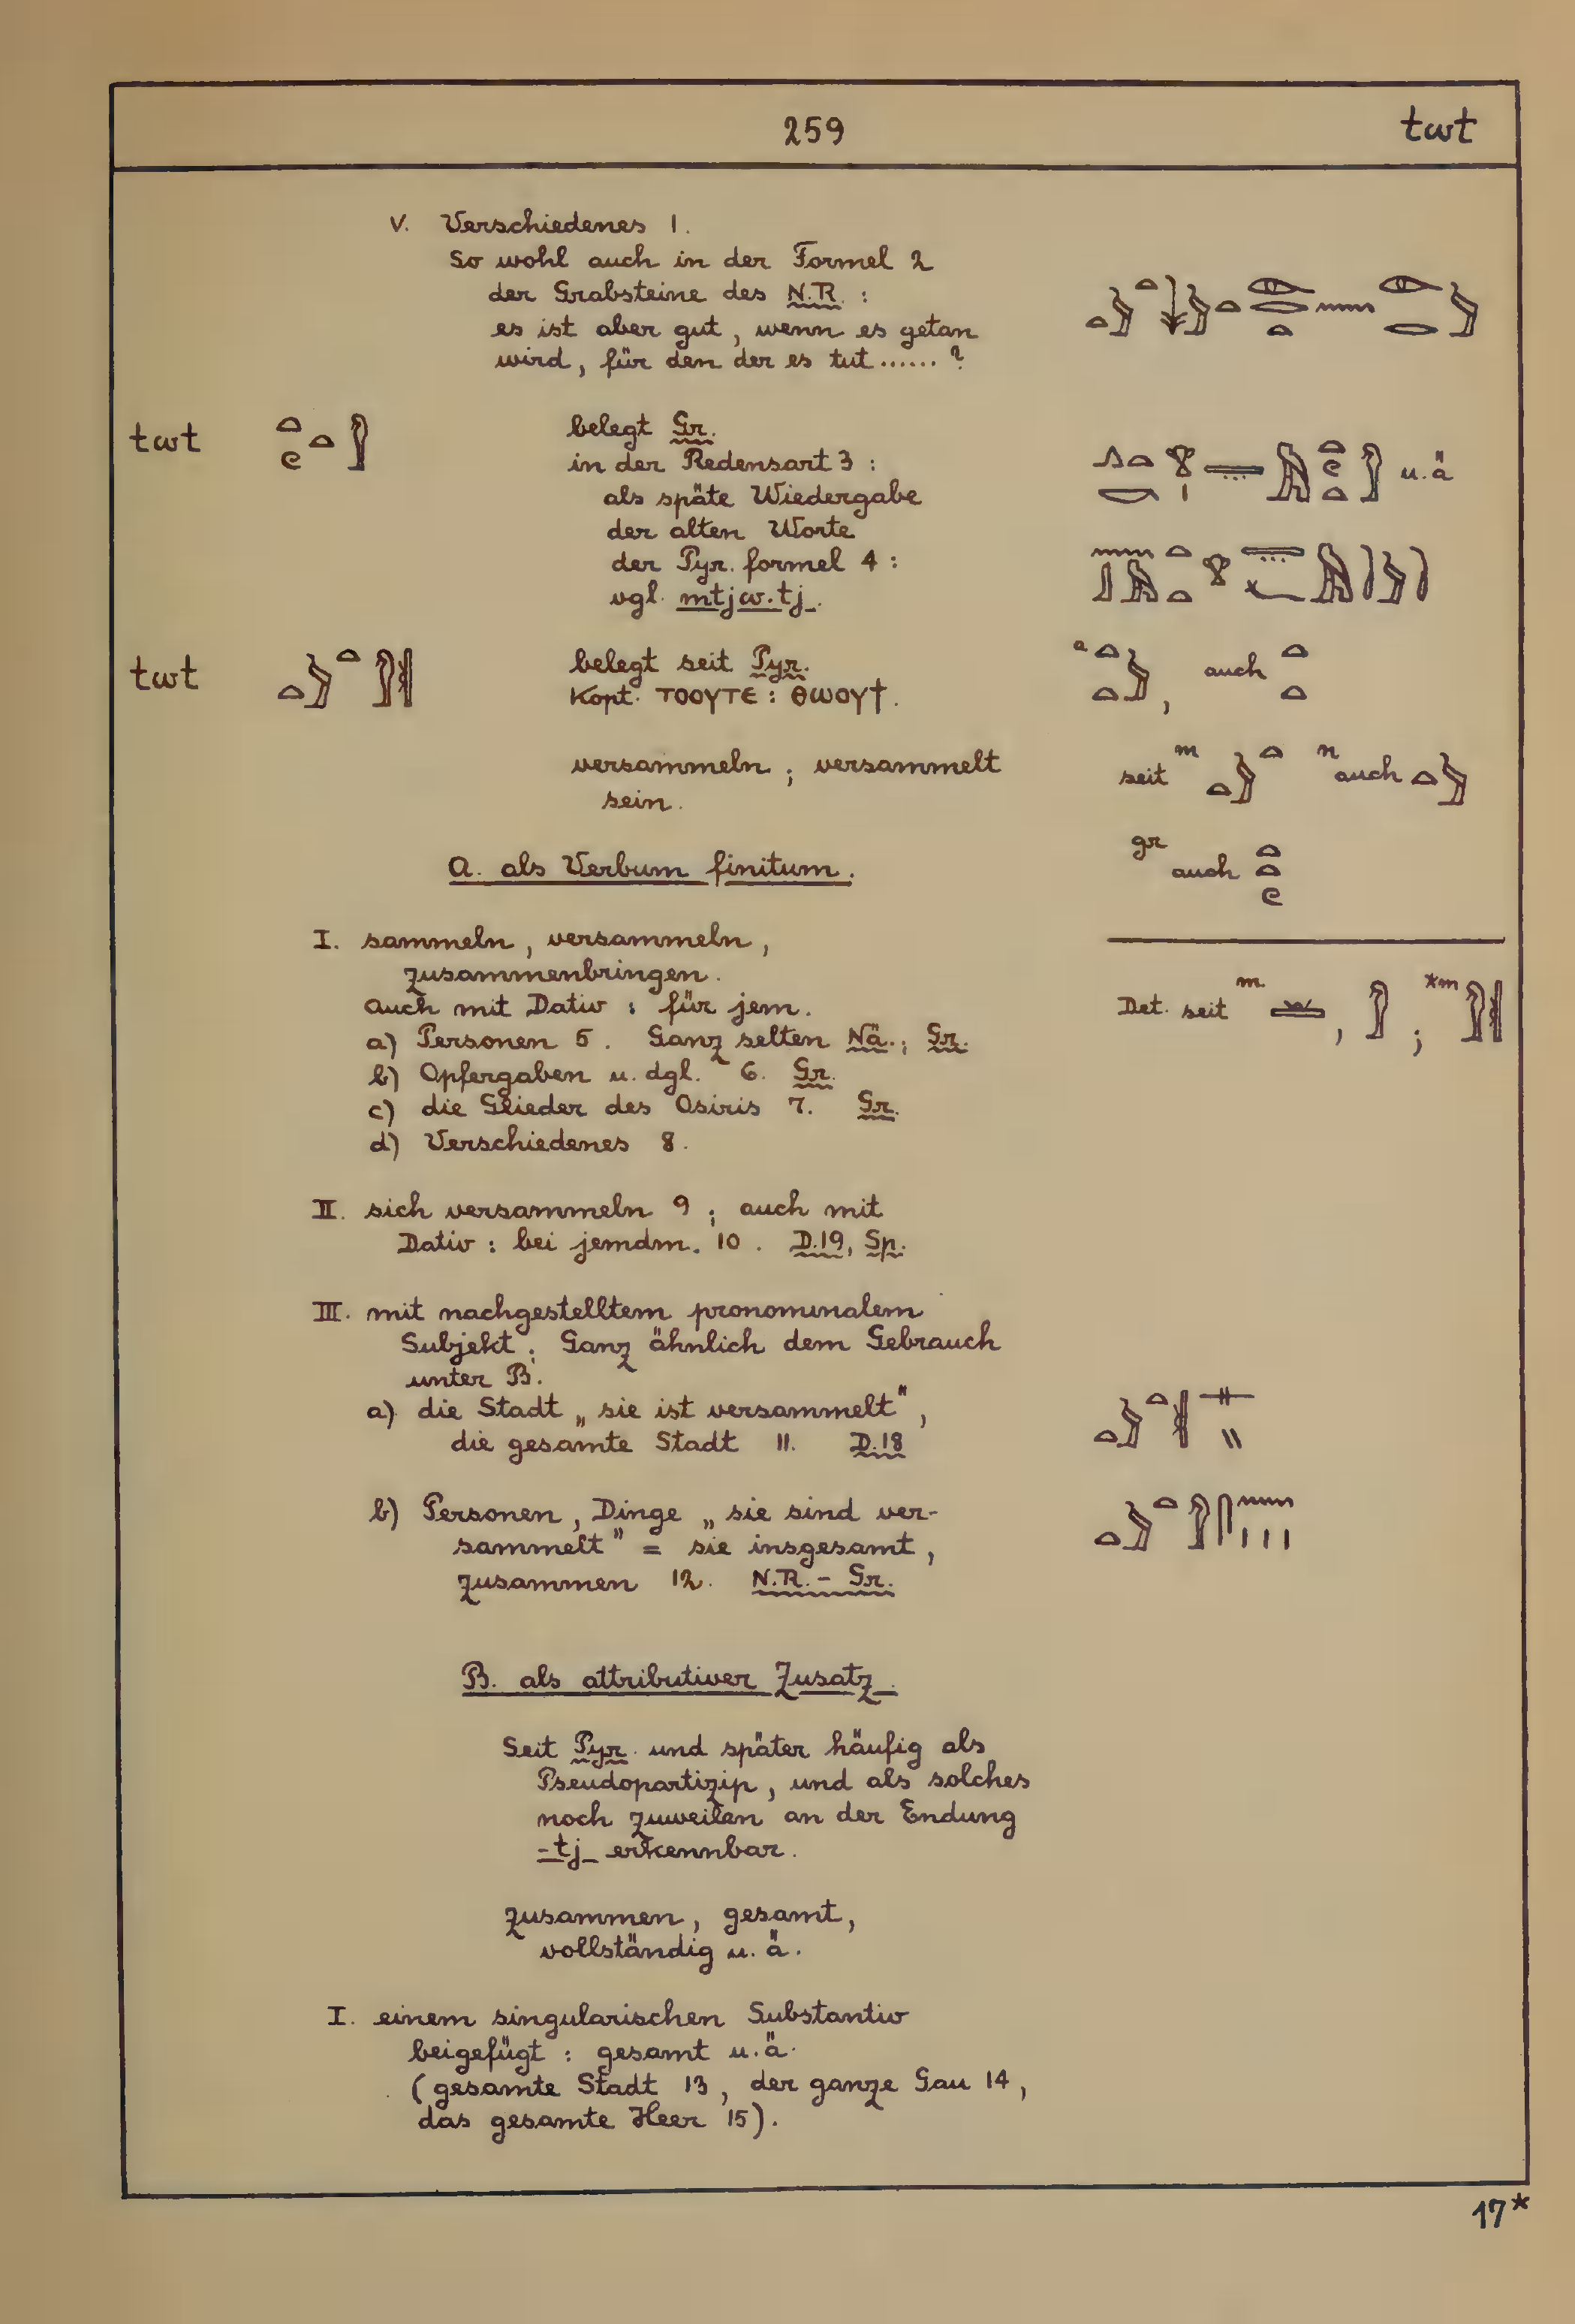 259 twt
V. Verschiedenes 1.
So wohl auch in der Formel 2
der Grabsteine des N.R. :
es ist aber gut, wenn es getan
wird, für den der es tut ...... ?
twt
belegt Gr.
in der Redensart 3 :
u. ä
als späte Wiedergabe
der alten Worte
der Pyr. formel 4 :
vgl. mtjw.tj.
twt
belegt seit Pyr.
Kopt. ⲧⲟⲟⲩⲧⲉ : ⲑⲱⲟⲩϯ.
a , auch
versammeln ; versammelt
sein.
seit m n auch
gr auch
A. als Verbum finitum.
I. sammeln, versammeln,
zusammenbringen.
auch mit Dativ : für jem.
Det. seit m , ; *m
a) Personen 5. Ganz selten Nä.; Gr.
b) Opfergaben u. dgl. 6. Gr.
c) die Glieder des Osiris 7. Gr.
d) Verschiedenes 8.
II. sich versammeln 9 ; auch mit
Dativ : bei jemdm. 10. D.19, Sp.
III. mit nachgestelltem pronominalem
Subjekt. Ganz ähnlich dem Gebrauch
unter B.
a) die Stadt „sie ist versammelt",
die gesamte Stadt 11. D.18
b) Personen, Dinge „sie sind ver-
sammelt" = sie insgesamt,
zusammen 12. N.R. - Gr.
B. als attributiver Zusatz.
Seit Pyr. und später häufig als
Pseudopartizip, und als solches
noch zuweilen an der Endung
-tj erkennbar.
zusammen, gesamt,
vollständig u. ä.
I. einem singularischen Substantiv
beigefügt : gesamt u. ä.
(gesamte Stadt 13, der ganze Gau 14,
das gesamte Heer 15).
17*